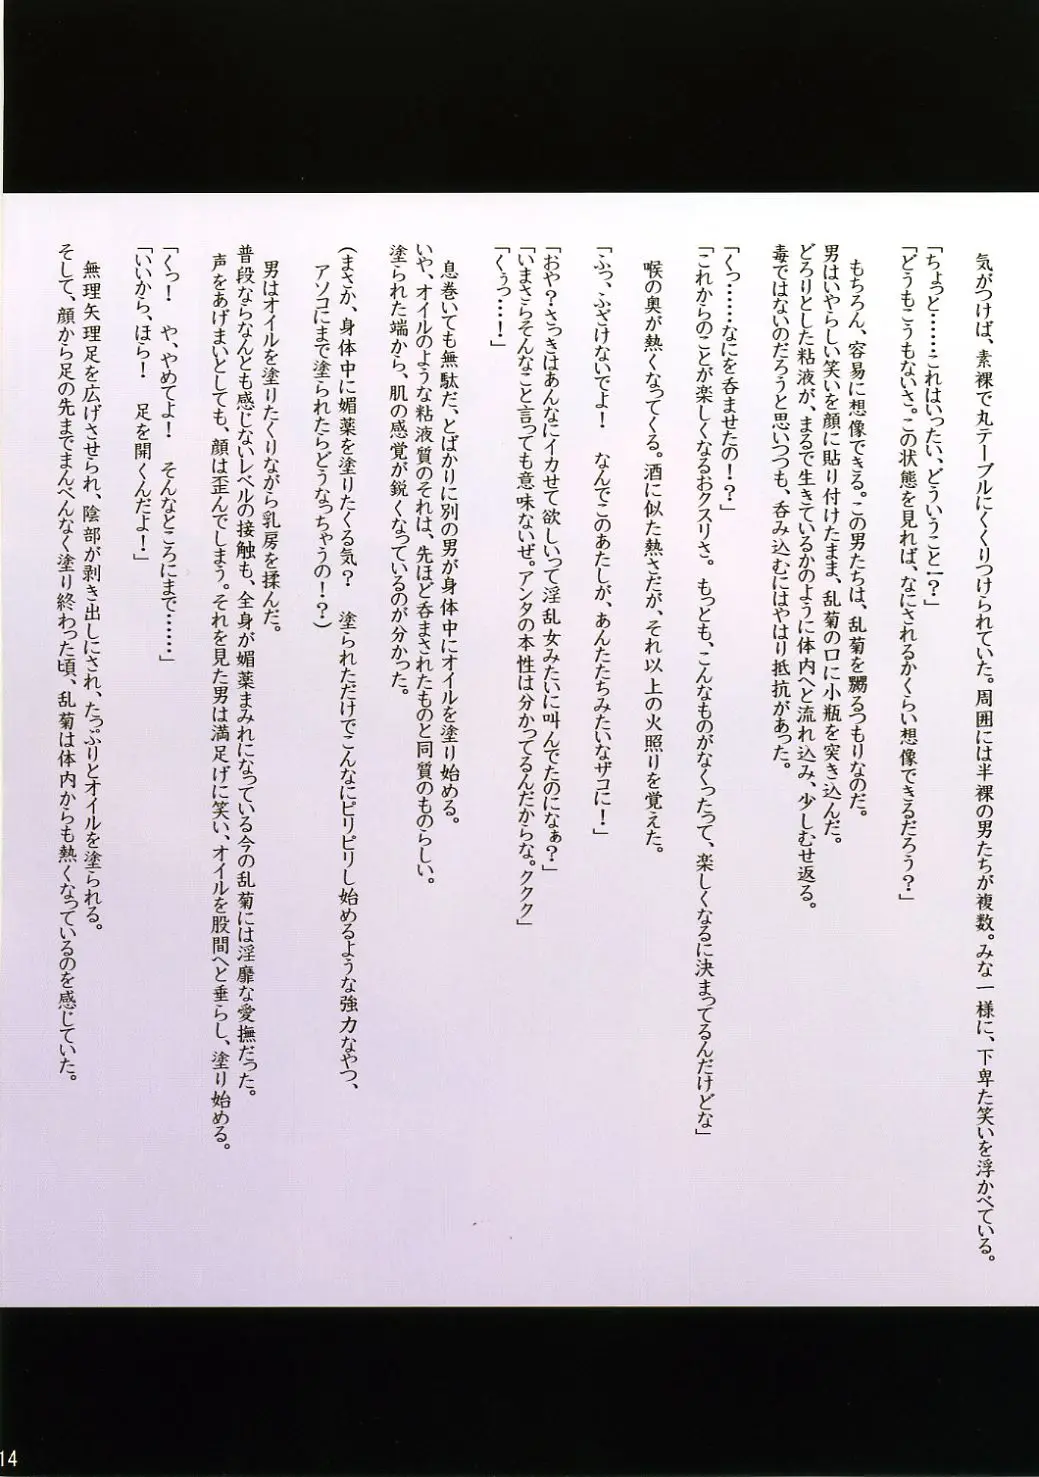 気がつけば、素裸で丸テーブルにくくりつけられていた。周囲には半裸の男たちが複数。みな一様に、下卑た笑いを浮かべている。
「ちょっと……これはいったい、どういうこと―？」
「どうもこうもないさ。この状態を見れば、なにされるかくらい想像できるだろう？」
もちろん、容易に想像できる。この男たちは、乱菊を嬲るつもりなのだ。
男はいやらしい笑いを顔に貼り付けたまま、乱菊の口に小瓶を突き込んだ。
どろりとした粘液が、まるで生きているかのように体内へと流れ込み、少しむせ返る。
毒ではないのだろうと思いつつも、呑み込むにはやはり抵抗があった。
「くっ……なにを呑ませたの！？」
「これからのことが楽しくなるおクスリさ。もっとも、こんなものがなくったって、楽しくなるに決まってるんだけどな」
喉の奥が熱くなってくる。酒に似た熱さだが、それ以上の火照りを覚えた。
「ふっ、ふざけないでよ！　なんでこのあたしが、あんたたちみたいなザコに！」
「おや？さっきはあんなにイカせて欲しいって淫乱女みたいに叫んでたのになぁ？」
「いまさらそんなこと言っても意味ないぜ。アンタの本性は分かってるんだからな。ククク」
「くぅっ…！」
息巻いても無駄だ、とばかりに別の男が身体中にオイルを塗り始める。
いや、オイルのような粘液質のそれは、先ほど呑まされたものと同質のものらしい。
塗られた端から、肌の感覚が鋭くなっているのが分かった。
（まさか、身体中に媚薬を塗りたくる気？　塗られただけでこんなにピリピリし始めるような強力なやつ、
アソコにまで塗られたらどうなっちゃうの！？）
男はオイルを塗りたくりながら乳房を揉んだ。
普段ならなんとも感じないレベルの接触も、全身が媚薬まみれになっている今の乱菊には淫靡な愛撫だった。
声をあげまいとしても、顔は歪んでしまう。それを見た男は満足げに笑い、オイルを股間へと垂らし、塗り始める。
「くっ！　や、やめてよ！　そんなところにまで……」
「いいから、ほら！　足を開くんだよ！」
無理矢理足を広げさせられ、陰部が剥き出しにされ、たっぷりとオイルを塗られる。
そして、顔から足の先までまんべんなく塗り終わった頃、乱菊は体内からも熱くなっているのを感じていた。
14